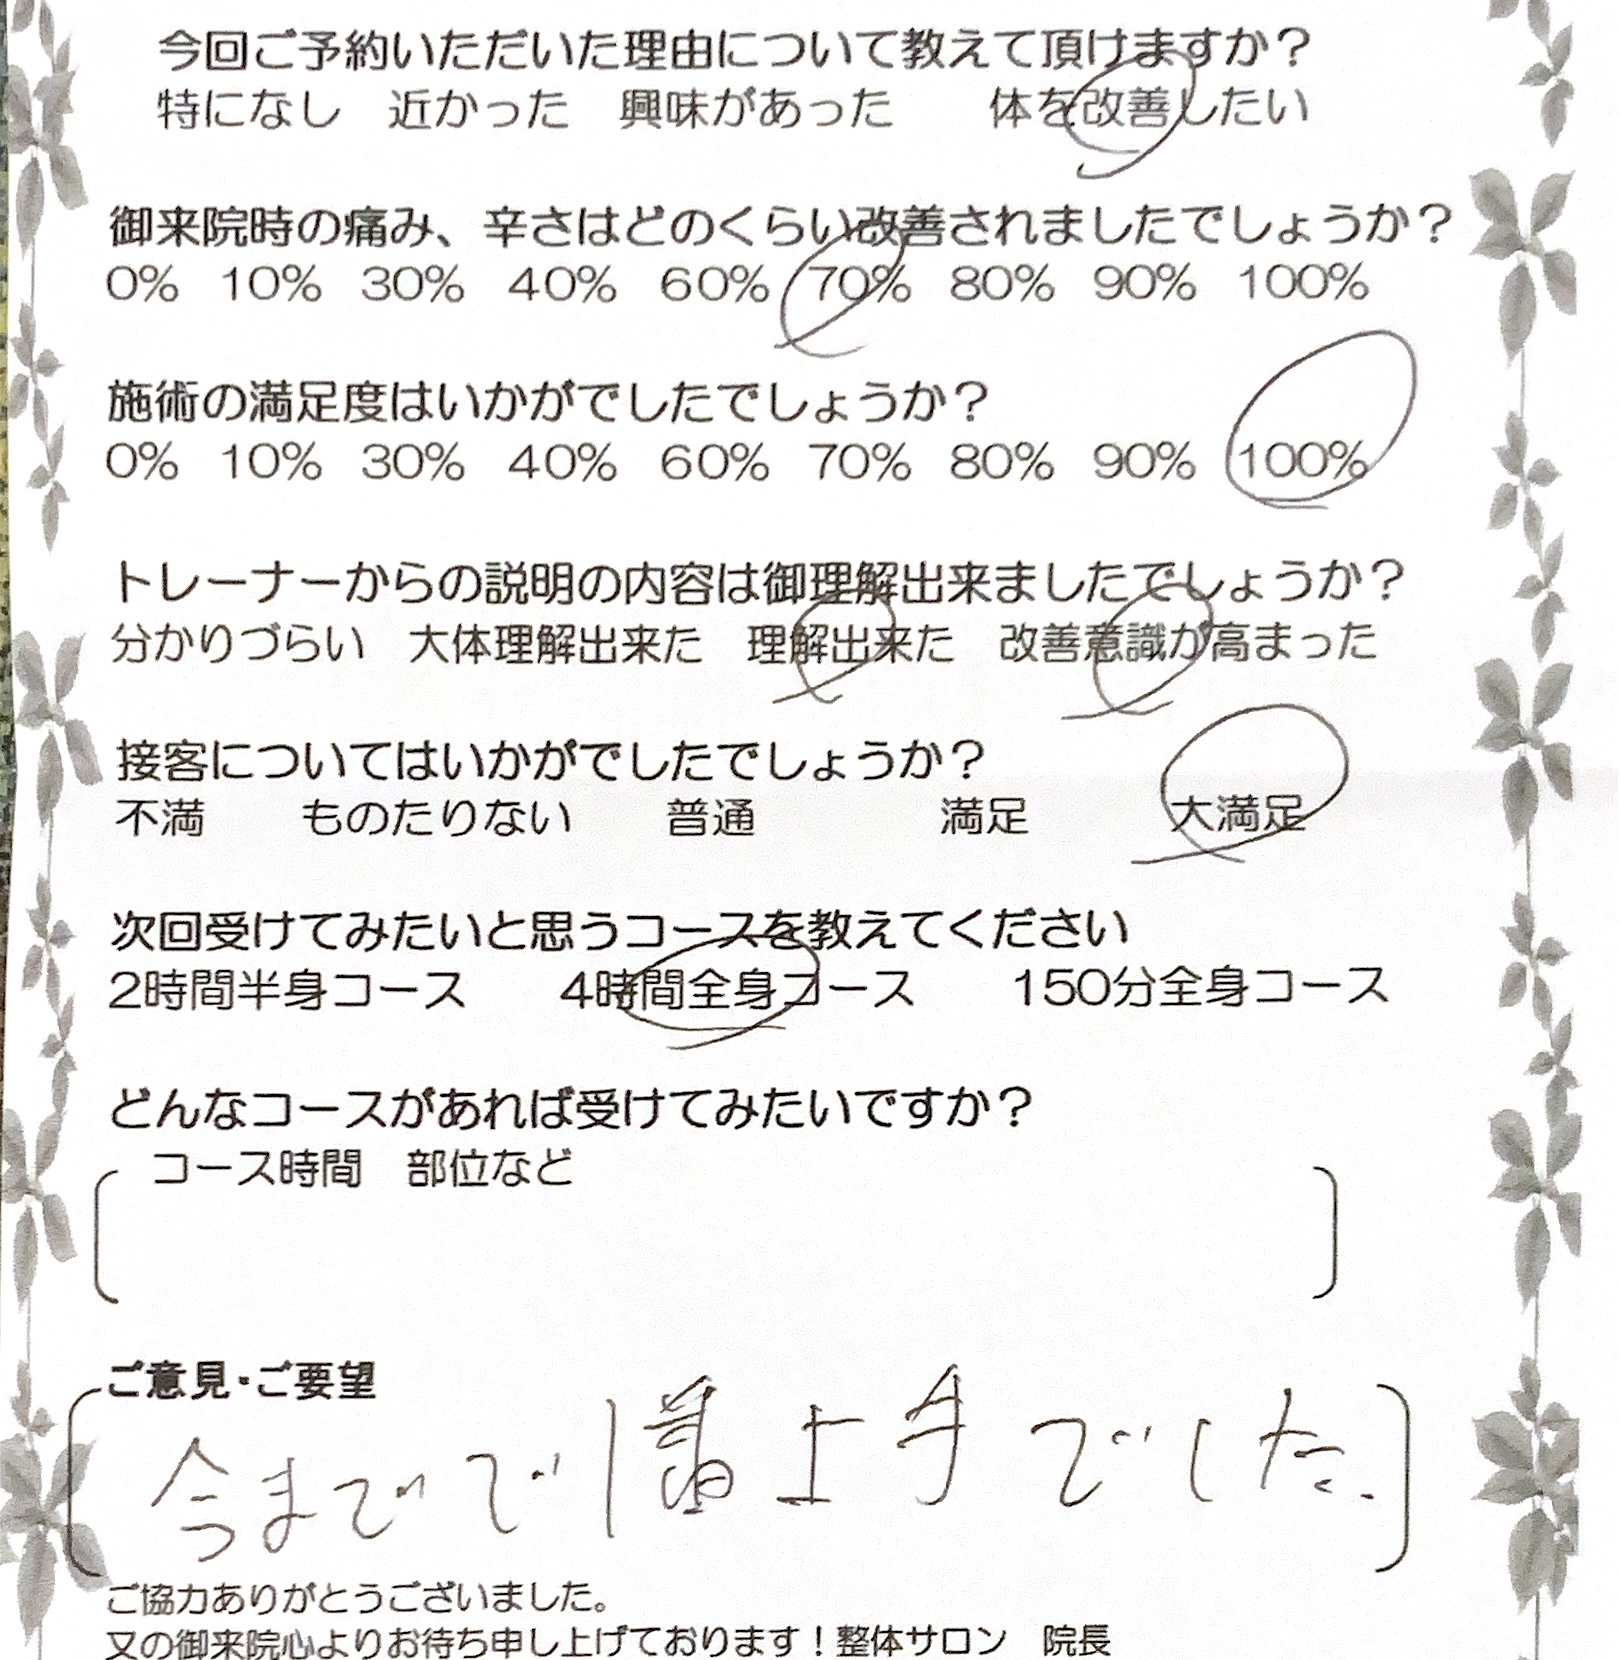 今回ご予約いただいた理由について教えて頂けますか？
特になし　近かった　興味があった　　体を改善したい
御来院時の痛み、辛さはどのくらい改善されましたでしょうか？
0%　10%　30%　40%　60%　70%　80%　90%　100%
施術の満足度はいかがでしたでしょうか？
0%　10%　30%　40%　60%　70%　80%　90%　100%
トレーナーからの説明の内容は御理解出来ましたでしょうか？
分かりづらい　大体理解出来た　理解出来た　改善意識が高まった
接客についてはいかがでしたでしょうか？
不満　　ものたりない　　普通　　　　満足　　　大満足
次回受けてみたいと思うコースを教えてください
2時間半身コース　　4時間全身コース　　150分全身コース
どんなコースがあれば受けてみたいですか？
コース時間　部位など
ご意見・ご要望
今までで1番上手でした.
ご協力ありがとうございました。
又の御来院心よりお待ち申し上げております！整体サロン　院長